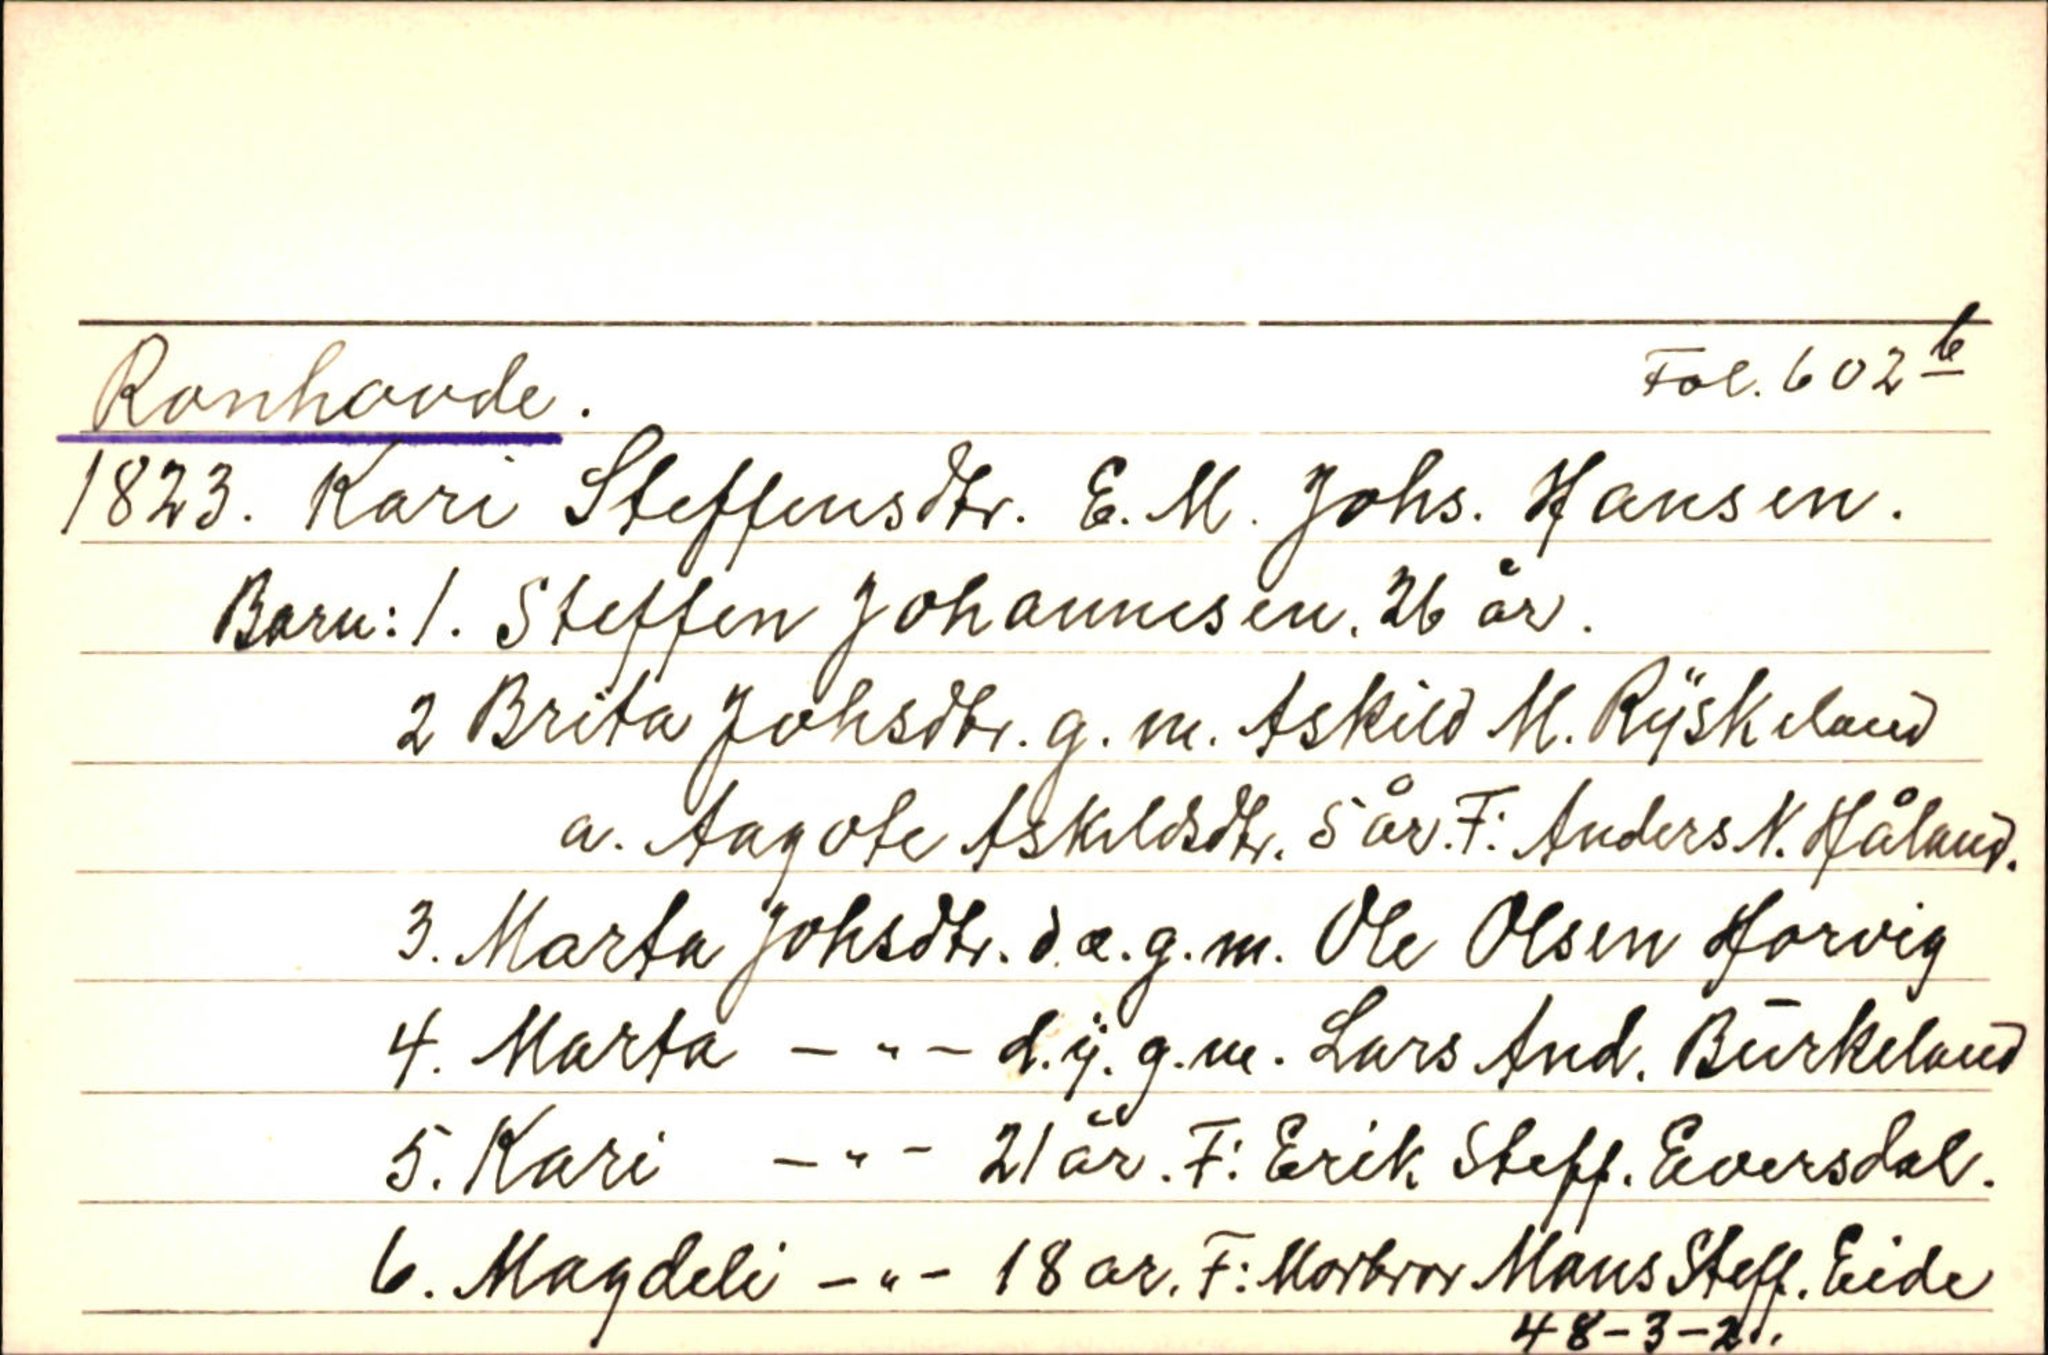 Ronhovde. Fol. 602 b
1823. Kari Steffensdtr. E. M. Johs. Hansen.
Barn: 1. Steffen Johannesen. 26 år.
2 Brita Johsdtr. g. m. Askild M. Rÿskeland
a. Aagote Askildsdtr. 5 år. F: Anders N. Håland.
3. Marta Johsdtr. d. e. g. m. Ole Olsen Horvig
4. Marta — " — d. y. g. m. Lars And. Burkeland
5. Kari — " — 21 år. F: Erik Steff. Eversdal.
6. Magdeli — " — 18 ar. F: Morbror Mons Steff. Eide
48-3-21.